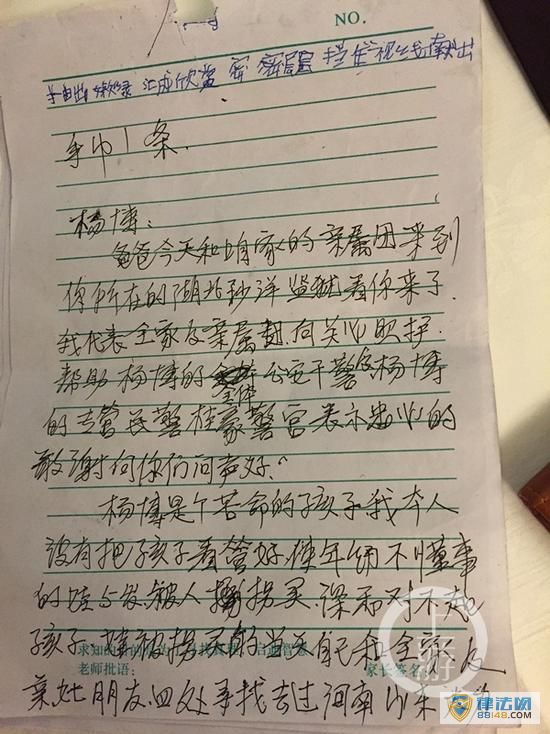 NO.
手巾1条.
杨博:
爸爸今天和咱家的亲属团来到
你所在的湖北沙洋监狱看你来了.
我代表全家及亲属团.向关心照护.
帮助杨博的全体公安干警及杨博
的专管民警桂豪警官表示忠心的
敬谢向你们问声好.
杨博是个苦命的孩子我本人
没有把孩子看管好.使年幼不懂事
的娃 被人拐卖.深和对不起
孩子. 被拐卖的当天自己和全家及
老师批语: 家长签名:
亲处朋友.四处寻找去过河南
上游
律法网
88148.com